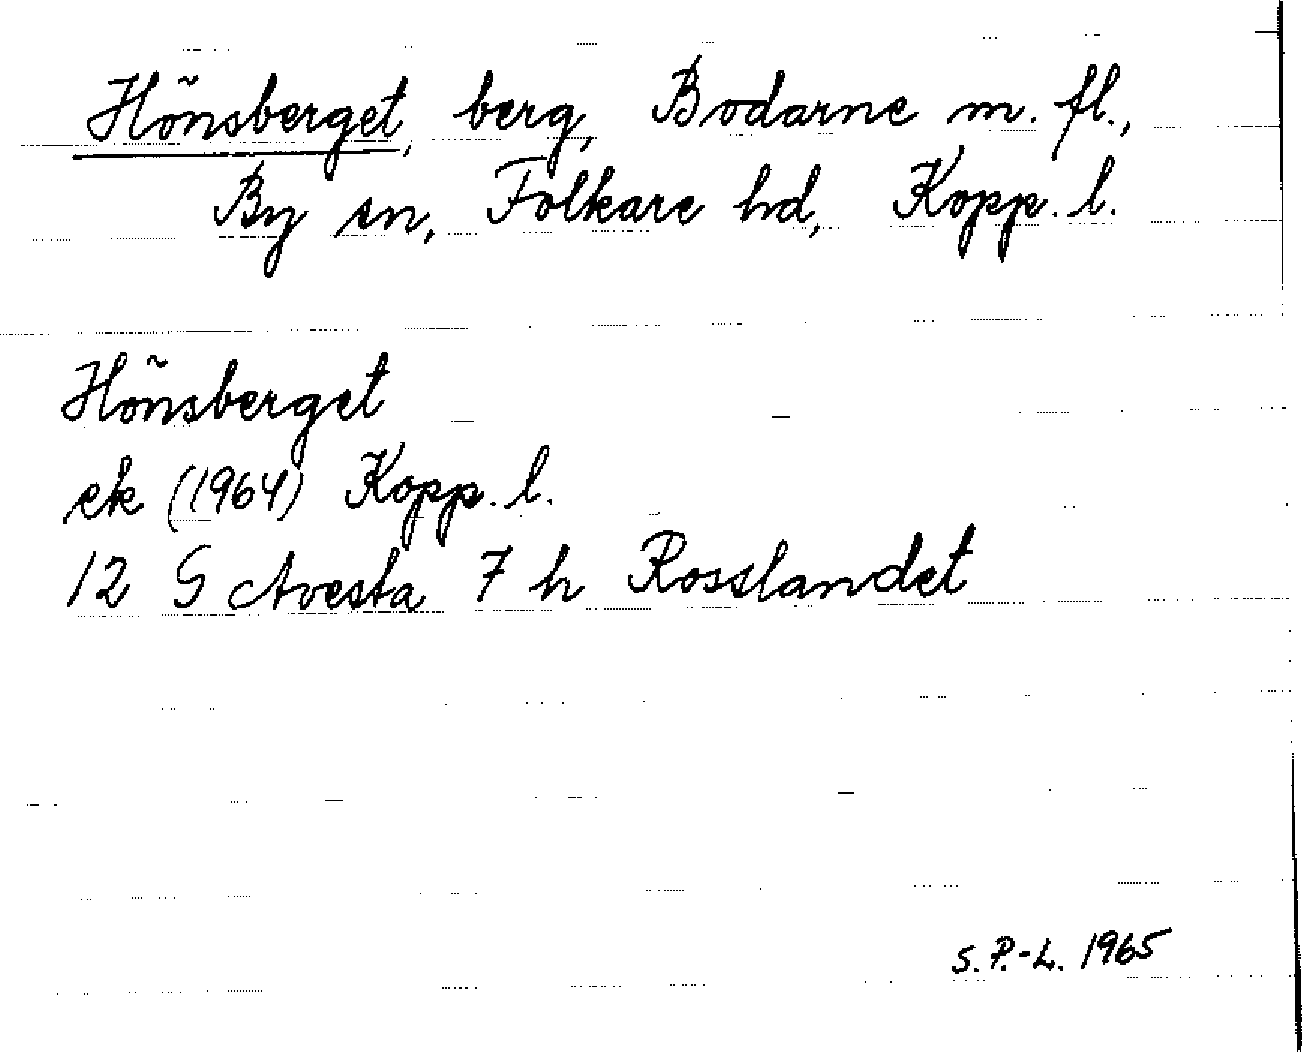 Hönsberget, berg, Bodarne m. fl.,
By sn, Folkare hd, Kopp. l.
Hönsberget
ek (1964) Kopp. l.
12 G Avesta 7 h Rosslandet
S. P.-L. 1965